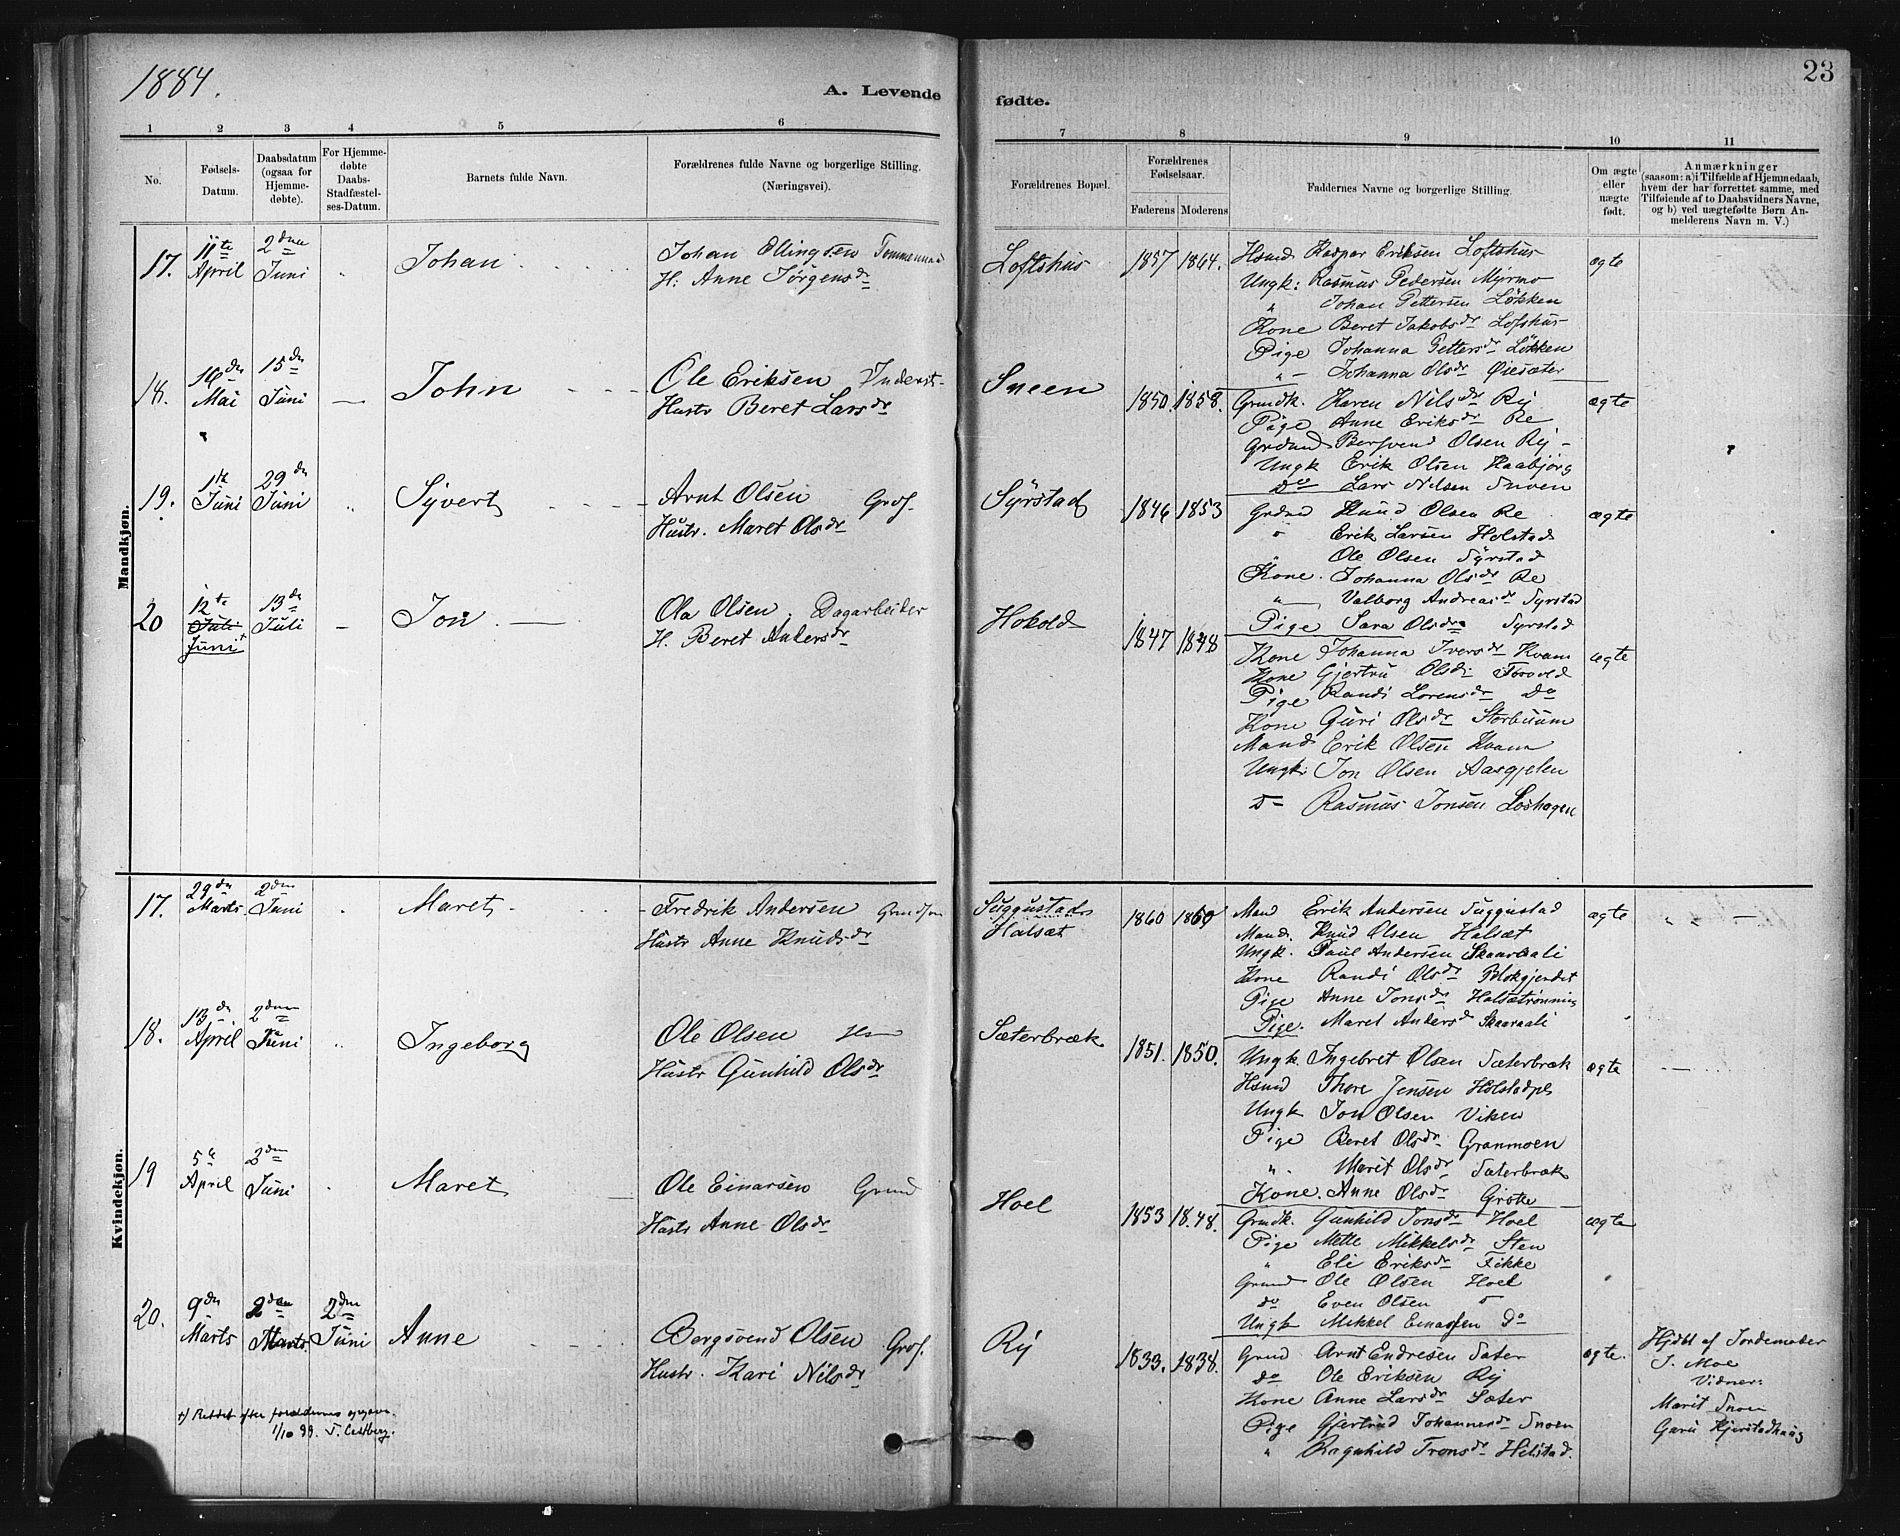 1884.
A. Levende
fødte.
23
1 2 3 4 5 6 7 8 9 10 11
No.
Fødsels-
Datum.
Daabsdatum
(ogsaa for
Hjemme-
døbte).
For Hjemme-
døbte
Daabs-
Stadfæstel-
ses-Datum.
Barnets fulde Navn.
Forældrenes fulde Navne og borgerlige Stilling.
(Næringsvei).
Forældrenes Bopæl.
Forældrenes
Fødselsaar.
Faderens Moderens
Faddernes Navne og borgerlige Stilling.
Om ægte
eller
uægte
født.
Anmærkninger
(saasom: a) i Tilfælde af Hjemmedaab,
hvem der har forrettet samme, med
Tilføiende af to Daabsvidners Navne,
og b) ved uægtefødte Børn An-
melderens Navn m. V.)
Mandkjøn.
17. 11te April 2den Juni " Johan
Johan Ellingsen
H: Anne Jørgensdr
Loftshus 1857 1864. ægte
Hsmd Kaspar Eriksen Loftshus
Ungk: Rasmus Pedersen Myrmo
" Johan Pettersen Løkken
Kone Beret Jakobsdr Lofshus
Pige Johanna Pettersdr Løkken
" Johanna Olsdr Øiesæter
18. Mai 15de Juni — John
Ole Eriksen Inderst
Hustr Beret Larsdr
Sneen 1850. 1858. ægte
Grmdk. Karen Nilsdr Rij
Pige Anne Eriksdr Re
Grdmd Bersvend Olsen Rij
Ungk Erik Olsen Haabjørg
Do Lars Nilsen Snoen
19. 1te Juni 29de Juni " Syvert
Arnt Olsen Grdf.
Hustr. Maret Olsdr
Syrstad 1846 1853 ægte
Grdmd Knud Olsen Re
" Erik Larsen Holstad
" Ole Olsen Syrstad
Kone. Johanna Olsdr Re
" Valborg Andreasdr Syrstad
Pige Sara Olsdr Syrstad
20 12te Juli Juni + 13de Juli — Jon
Ola Olsen. Dagarbeider
H. Beret Andersdr
Hokold 1847 1848 ægte
Kone Johanna Iversdr Kvam
Kone Gjertru Olsdr
Pige Randi Lorensdr Do
Kone Guri Olsdr Storbuum
Mand Erik Olsen Kvam
Ungk: Jon Olsen Aasgjelen
D— Rasmus Jonsen Loshagen
Kvindekjøn.
17. 29de Marts 2den Juni " Maret
Fredrik Andersen
Hustr Anne Knudsdr
Suggustad
Halsæt 1860 ægte " " —
Mand Erik Andersen Suggustad
Mand. Knud Olsen Halsæt
Ungk. Paul Andersen Skaaraali
Kone Randi Olsdr
Pige Anne Jonsdr Halsætrønning
Pige. Maret Andersd Skaaraali
18. 13de April 2den Juni " Ingeborg
Ole Olsen Hsm
Hustr Gunhild Olsdr
Sæterbræk 1851. 1850. ægte
Ungk. Ingebret Olsen Sæterbræk
Hsmd Thore Jensen Holstadpl
Ungk Jon Olsen Viken
Pige Beret Olsdr Granmoen
" Marit Olsdr Sæterbræk
Kone. Anne Olsdr
19 5te April 2den Juni " Maret
Ole Einarsen Grmd
Hustr Anne Olsdr
Hoel 1853 1848. ægte
Grmdk. Gunhild Jonsdr Hoel
Pige Mette Mikkelsdr Sten
" Eli Eriksdr Fikke
Grmd Ole Olsen Hoel
do Even Olsen "
Ungk Mikkel Einarsen Do
20. 9de Marts 2den Marts 2den Juni Anne
Bergsvend Olsen Grdf.
Hustr. Kari Nilsdr
Rij 1833. 1838. ægte.
Grmd Arnt Endresen Sæter
do Ole Eriksen Rij
Kone Anne Larsdr Sæter
Pige Gjertrud Johannesdr Snoen
" Ragnhild Tronsdr Helstad.
Hjdbt af Jordemoder
J. Moe
Vidner:
Marit Snoen
Guru Kjerstadhaug
+) Rettet efter forældrenes opgave.
1/10 99. J. Castberg.